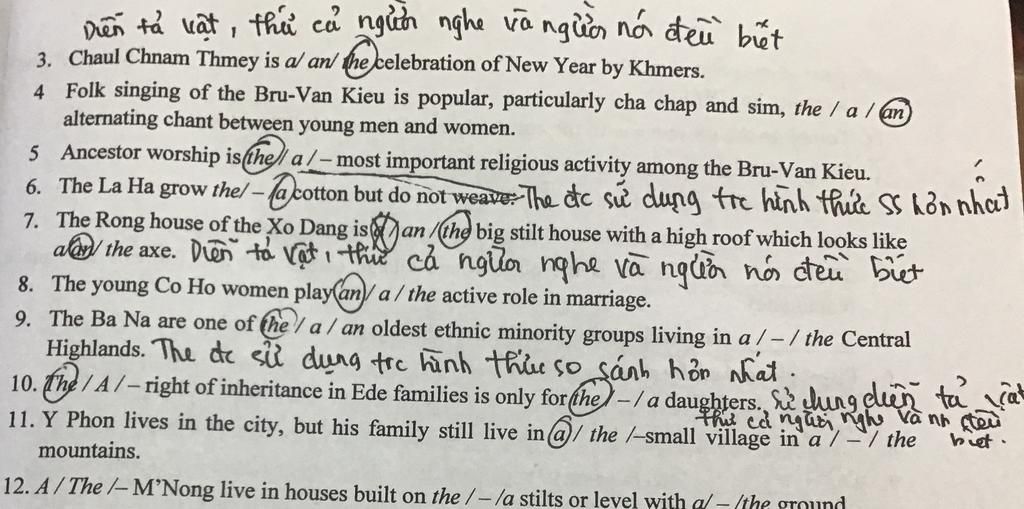 Diễn tả vật, thứ cả người nghe và người nói đều biết
3. Chaul Chnam Thmey is a/ an/ the celebration of New Year by Khmers.
4 Folk singing of the Bru-Van Kieu is popular, particularly cha chap and sim, the / a / an
alternating chant between young men and women.
5 Ancestor worship is the/ a / – most important religious activity among the Bru-Van Kieu.
6. The La Ha grow the/ – /a cotton but do not weave. The đc sử dụng trc hình thức SS hơn nhất
7. The Rong house of the Xo Dang is a / an / the big stilt house with a high roof which looks like
a/an/ the axe. Diễn tả vật, thứ cả người nghe và người nói đều biết
8. The young Co Ho women play an / a / the active role in marriage.
9. The Ba Na are one of the / a / an oldest ethnic minority groups living in a / – / the Central
Highlands. The đc sử dụng trc hình thức so sánh hơn nhất.
10. The / A / – right of inheritance in Ede families is only for the / – / a daughters. Sử dụng diễn tả vật
thứ cả người nghe và nn đều
11. Y Phon lives in the city, but his family still live in a / the /–small village in a / – / the biết.
mountains.
12. A / The /– M'Nong live in houses built on the / – /a stilts or level with a/ – /the ground